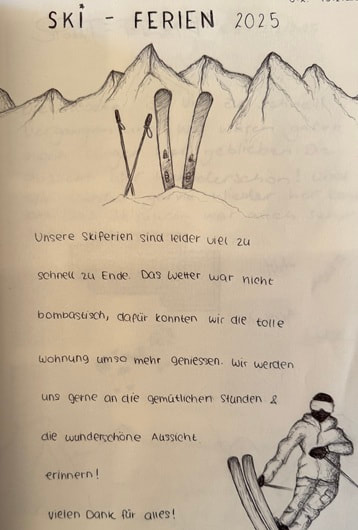 SKI - FERIEN 2025
Unsere Skiferien sind leider viel zu
schnell zu Ende. Das Wetter war nicht
bombastisch, dafür konnten wir die tolle
Wohnung umso mehr geniessen. Wir werden
uns gerne an die gemütlichen Stunden &
die wunderschöne Aussicht
erinnern!
Vielen Dank für alles!